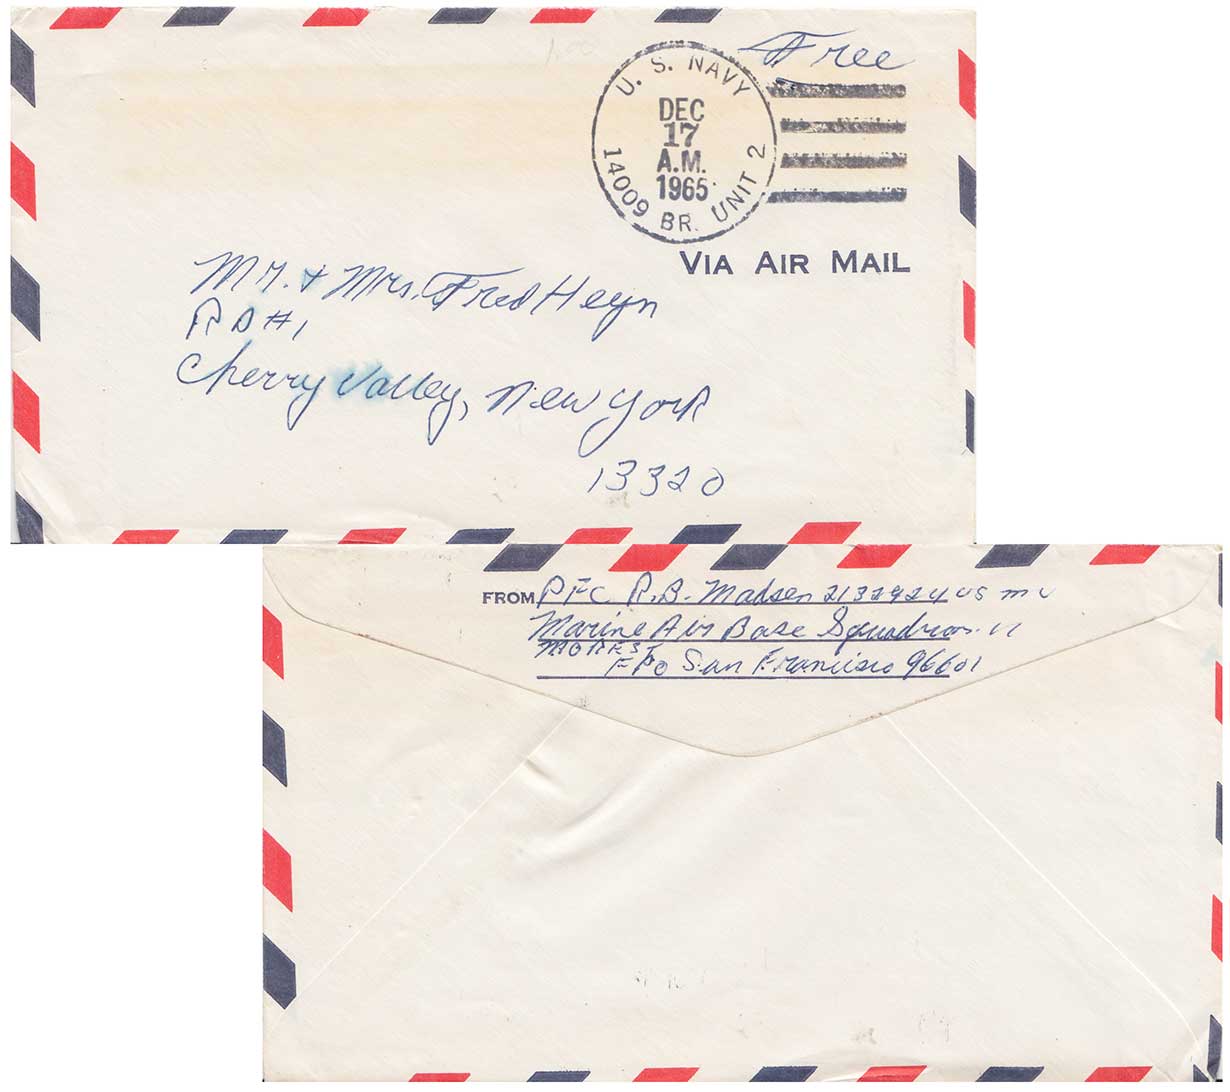 Free
U. S. NAVY
DEC
17
A.M.
1965
14009 BR. UNIT 2
VIA AIR MAIL
Mr. & Mrs. Fred Heyn
RD #1
Cherry Valley, New York
13320
FROM PFC R.B. Madsen 2132924 USMC
Marine Air Base Squadron 11
MOREST
FPO San Francisco 96601